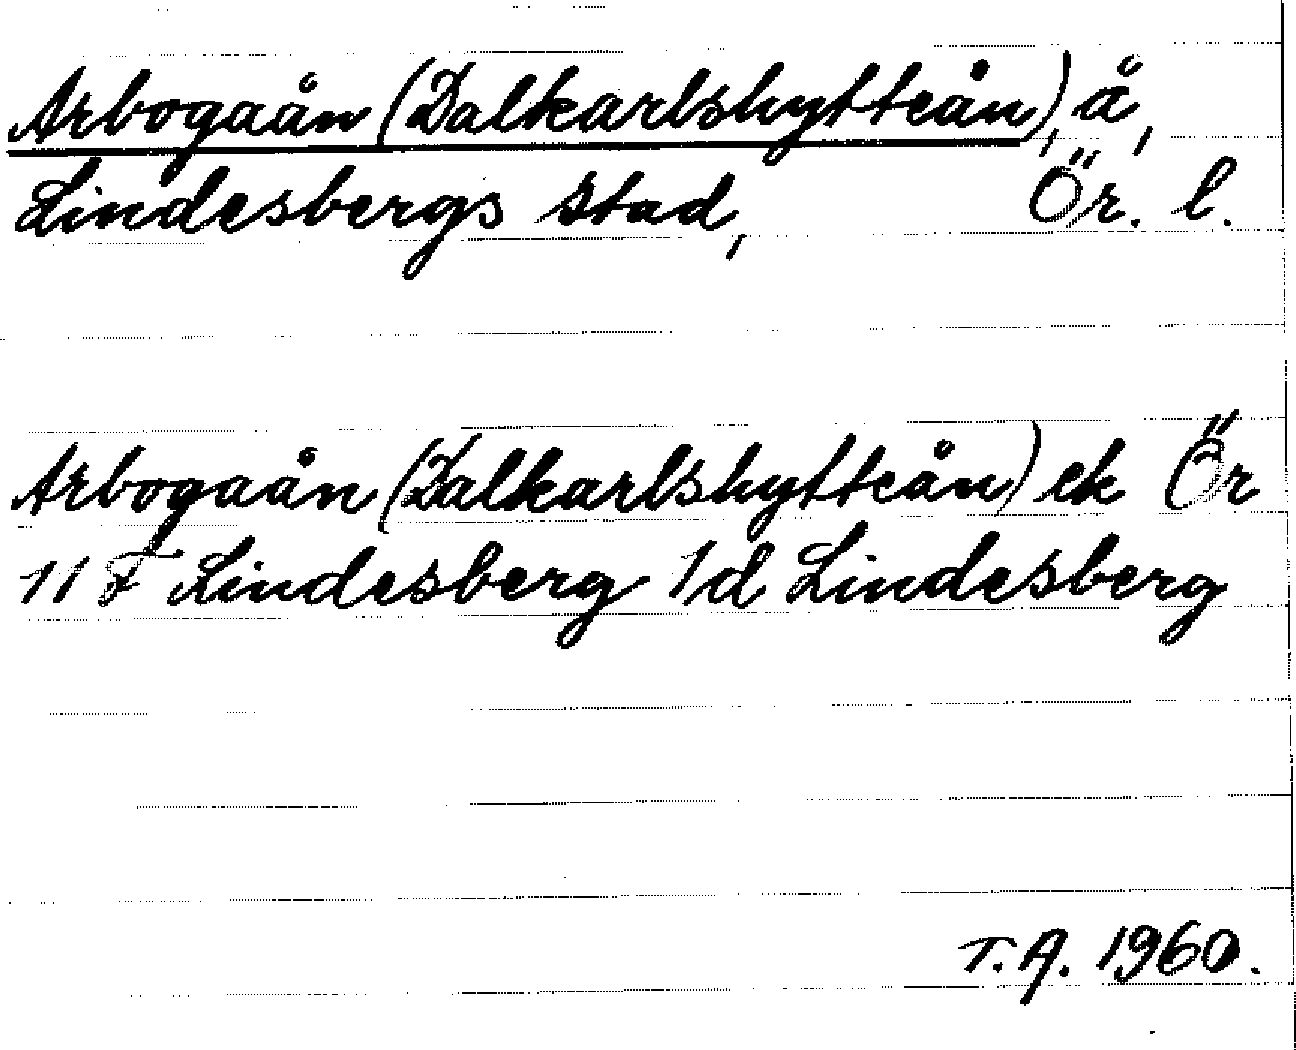 Arbogaån (Dalkarlshytteån), å,
Lindesbergs stad, Ör. l.
Arbogaån (Dalkarlshytteån) ek Ör
11 F Lindesberg 1d Lindesberg
T.A. 1960.